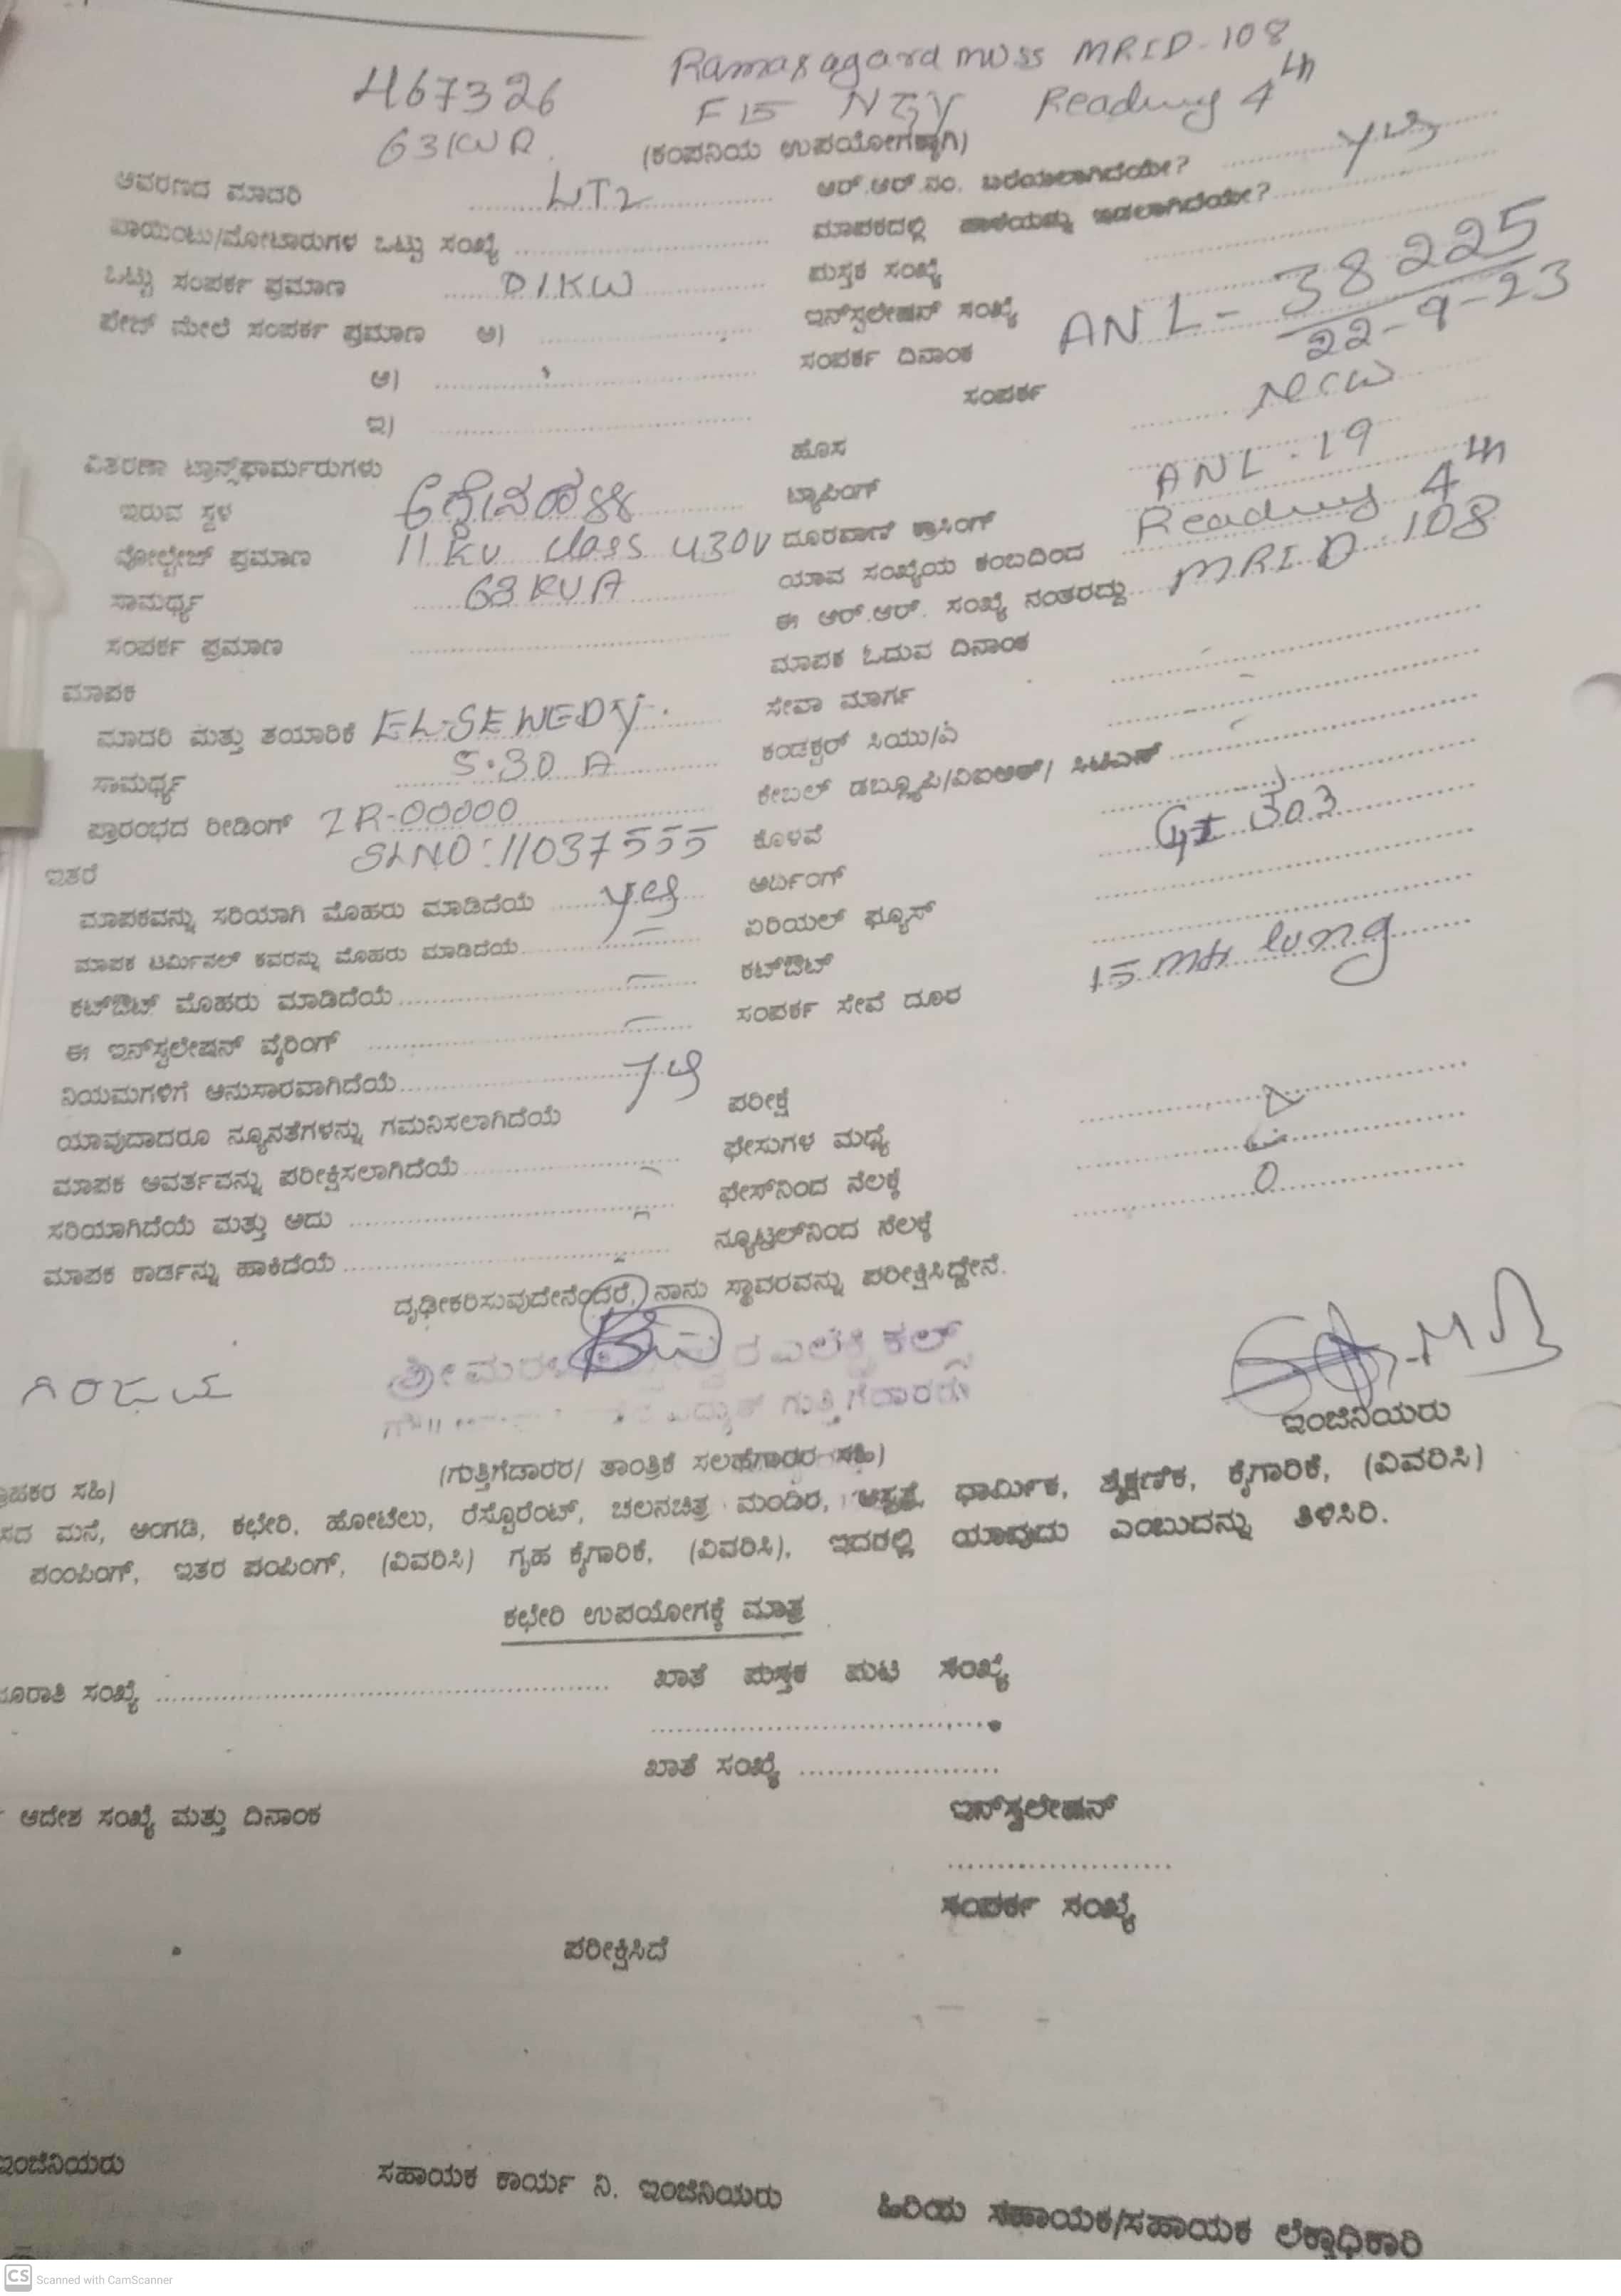 467326 Ramasagara muss MRID-108
63KVA F15 NJY Reading 4th
(ಕಂಪನಿಯ ಉಪಯೋಗಕ್ಕಾಗಿ)
ಆವರಣದ ಮಾದರಿ LT2 ಆರ್.ಆರ್.ನಂ. ಬರೆಯಲಾಗಿದೆಯೇ? yes
ಪಾಯಿಂಟು/ಮೋಟಾರುಗಳ ಒಟ್ಟು ಸಂಖ್ಯೆ ಮಾಪಕದಲ್ಲಿ ಹಾಳೆಯನ್ನು ಇಡಲಾಗಿದೆಯೇ?
ಒಟ್ಟು ಸಂಪರ್ಕ ಪ್ರಮಾಣ 01KW ಪುಸ್ತಕ ಸಂಖ್ಯೆ
ಫೇಜ್ ಮೇಲೆ ಸಂಪರ್ಕ ಪ್ರಮಾಣ ಅ) ಇನ್‌ಸ್ಟಲೇಷನ್ ಸಂಖ್ಯೆ ANL-38225
ಆ) ಸಂಪರ್ಕ ದಿನಾಂಕ 22-9-23
ಇ) ಸಂಪರ್ಕ New
ವಿತರಣಾ ಟ್ರಾನ್ಸ್‌ಫಾರ್ಮರುಗಳು ಹೊಸ
ಇರುವ ಸ್ಥಳ ಟ್ಯಾಪಿಂಗ್ ANL-19
ವೋಲ್ಟೇಜ್ ಪ್ರಮಾಣ 11 KV class 430V ದೂರವಾಣಿ ಕ್ರಾಸಿಂಗ್
ಸಾಮರ್ಥ್ಯ 63 KVA ಯಾವ ಸಂಖ್ಯೆಯ ಕಂಬದಿಂದ Reading 4th
ಸಂಪರ್ಕ ಪ್ರಮಾಣ ಈ ಆರ್.ಆರ್. ಸಂಖ್ಯೆ ನಂತರದ್ದು MRID-108
ಮಾಪಕ ಮಾಪಕ ಓದುವ ದಿನಾಂಕ
ಮಾದರಿ ಮತ್ತು ತಯಾರಿಕೆ EL-SEWEDY ಸೇವಾ ಮಾರ್ಗ
ಸಾಮರ್ಥ್ಯ 5-30 A ಕಂಡಕ್ಟರ್ ಸಿಯು/ಎ
ಪ್ರಾರಂಭದ ರೀಡಿಂಗ್ IR-00000 ಕೇಬಲ್ ಡಬ್ಲ್ಯೂಪಿ/ವಿಐಆರ್/ ಸಿಟಿಎಸ್
SLNO:11037555 ಕೊಳವೆ
ಇತರೆ
ಮಾಪಕವನ್ನು ಸರಿಯಾಗಿ ಮೊಹರು ಮಾಡಿದೆಯೆ yes ಅರ್ಥಿಂಗ್
ಮಾಪಕ ಟರ್ಮಿನಲ್ ಕವರನ್ನು ಮೊಹರು ಮಾಡಿದೆಯೆ ಏರಿಯಲ್ ಫ್ಯೂಸ್
ಕಟ್‌ಔಟ್ ಮೊಹರು ಮಾಡಿದೆಯೆ ಕಟ್‌ಔಟ್
ಈ ಇನ್‌ಸ್ಟಲೇಷನ್ ವೈರಿಂಗ್ ಸಂಪರ್ಕ ಸೇವೆ ದೂರ 15 mtr long
ನಿಯಮಗಳಿಗೆ ಅನುಸಾರವಾಗಿದೆಯೆ yes
ಯಾವುದಾದರೂ ನ್ಯೂನತೆಗಳನ್ನು ಗಮನಿಸಲಾಗಿದೆಯೆ ಪರೀಕ್ಷೆ
ಮಾಪಕ ಆವರ್ತವನ್ನು ಪರೀಕ್ಷಿಸಲಾಗಿದೆಯೆ ಫೇಸುಗಳ ಮಧ್ಯೆ
ಸರಿಯಾಗಿದೆಯೆ ಮತ್ತು ಅದು ಫೇಸ್‌ನಿಂದ ನೆಲಕ್ಕೆ 0
ಮಾಪಕ ಕಾರ್ಡನ್ನು ಹಾಕಿದೆಯೆ ನ್ಯೂಟ್ರಲ್‌ನಿಂದ ನೆಲಕ್ಕೆ
ದೃಢೀಕರಿಸುವುದೇನೆಂದರೆ, ನಾನು ಸ್ಥಾವರವನ್ನು ಪರೀಕ್ಷಿಸಿದ್ದೇನೆ.
ಎಲೆಕ್ಟ್ರಿಕಲ್ಸ್
ವಿದ್ಯುತ್ ಗುತ್ತಿಗೆದಾರರು
ಇಂಜಿನಿಯರು
(ಗುತ್ತಿಗೆದಾರರ/ ತಾಂತ್ರಿಕೆ ಸಲಹೆಗಾರರ ಸಹಿ)
ಸಹಿ)
ಮನೆ, ಅಂಗಡಿ, ಕಛೇರಿ, ಹೋಟೆಲು, ರೆಸ್ಟೊರೆಂಟ್, ಚಲನಚಿತ್ರ ಮಂದಿರ, ಆಸ್ಪತ್ರೆ, ಧಾರ್ಮಿಕ, ಶೈಕ್ಷಣಿಕ, ಕೈಗಾರಿಕೆ, (ವಿವರಿಸಿ)
ಪಂಪಿಂಗ್, ಇತರ ಪಂಪಿಂಗ್, (ವಿವರಿಸಿ) ಗೃಹ ಕೈಗಾರಿಕೆ, (ವಿವರಿಸಿ), ಇದರಲ್ಲಿ ಯಾವುದು ಎಂಬುದನ್ನು ತಿಳಿಸಿರಿ.
ಕಛೇರಿ ಉಪಯೋಗಕ್ಕೆ ಮಾತ್ರ
ಸಂಖ್ಯೆ ಖಾತೆ ಪುಸ್ತಕ ಪುಟ ಸಂಖ್ಯೆ
ಖಾತೆ ಸಂಖ್ಯೆ
ಆದೇಶ ಸಂಖ್ಯೆ ಮತ್ತು ದಿನಾಂಕ ಇನ್‌ಸ್ಟಲೇಷನ್
ಸಂಪರ್ಕ ಸಂಖ್ಯೆ
ಪರೀಕ್ಷಿಸಿದೆ
ಇಂಜಿನಿಯರು ಸಹಾಯಕ ಕಾರ್ಯ ನಿ. ಇಂಜಿನಿಯರು ಹಿರಿಯ ಸಹಾಯಕ/ಸಹಾಯಕ ಲೆಕ್ಕಾಧಿಕಾರಿ
CS Scanned with CamScanner